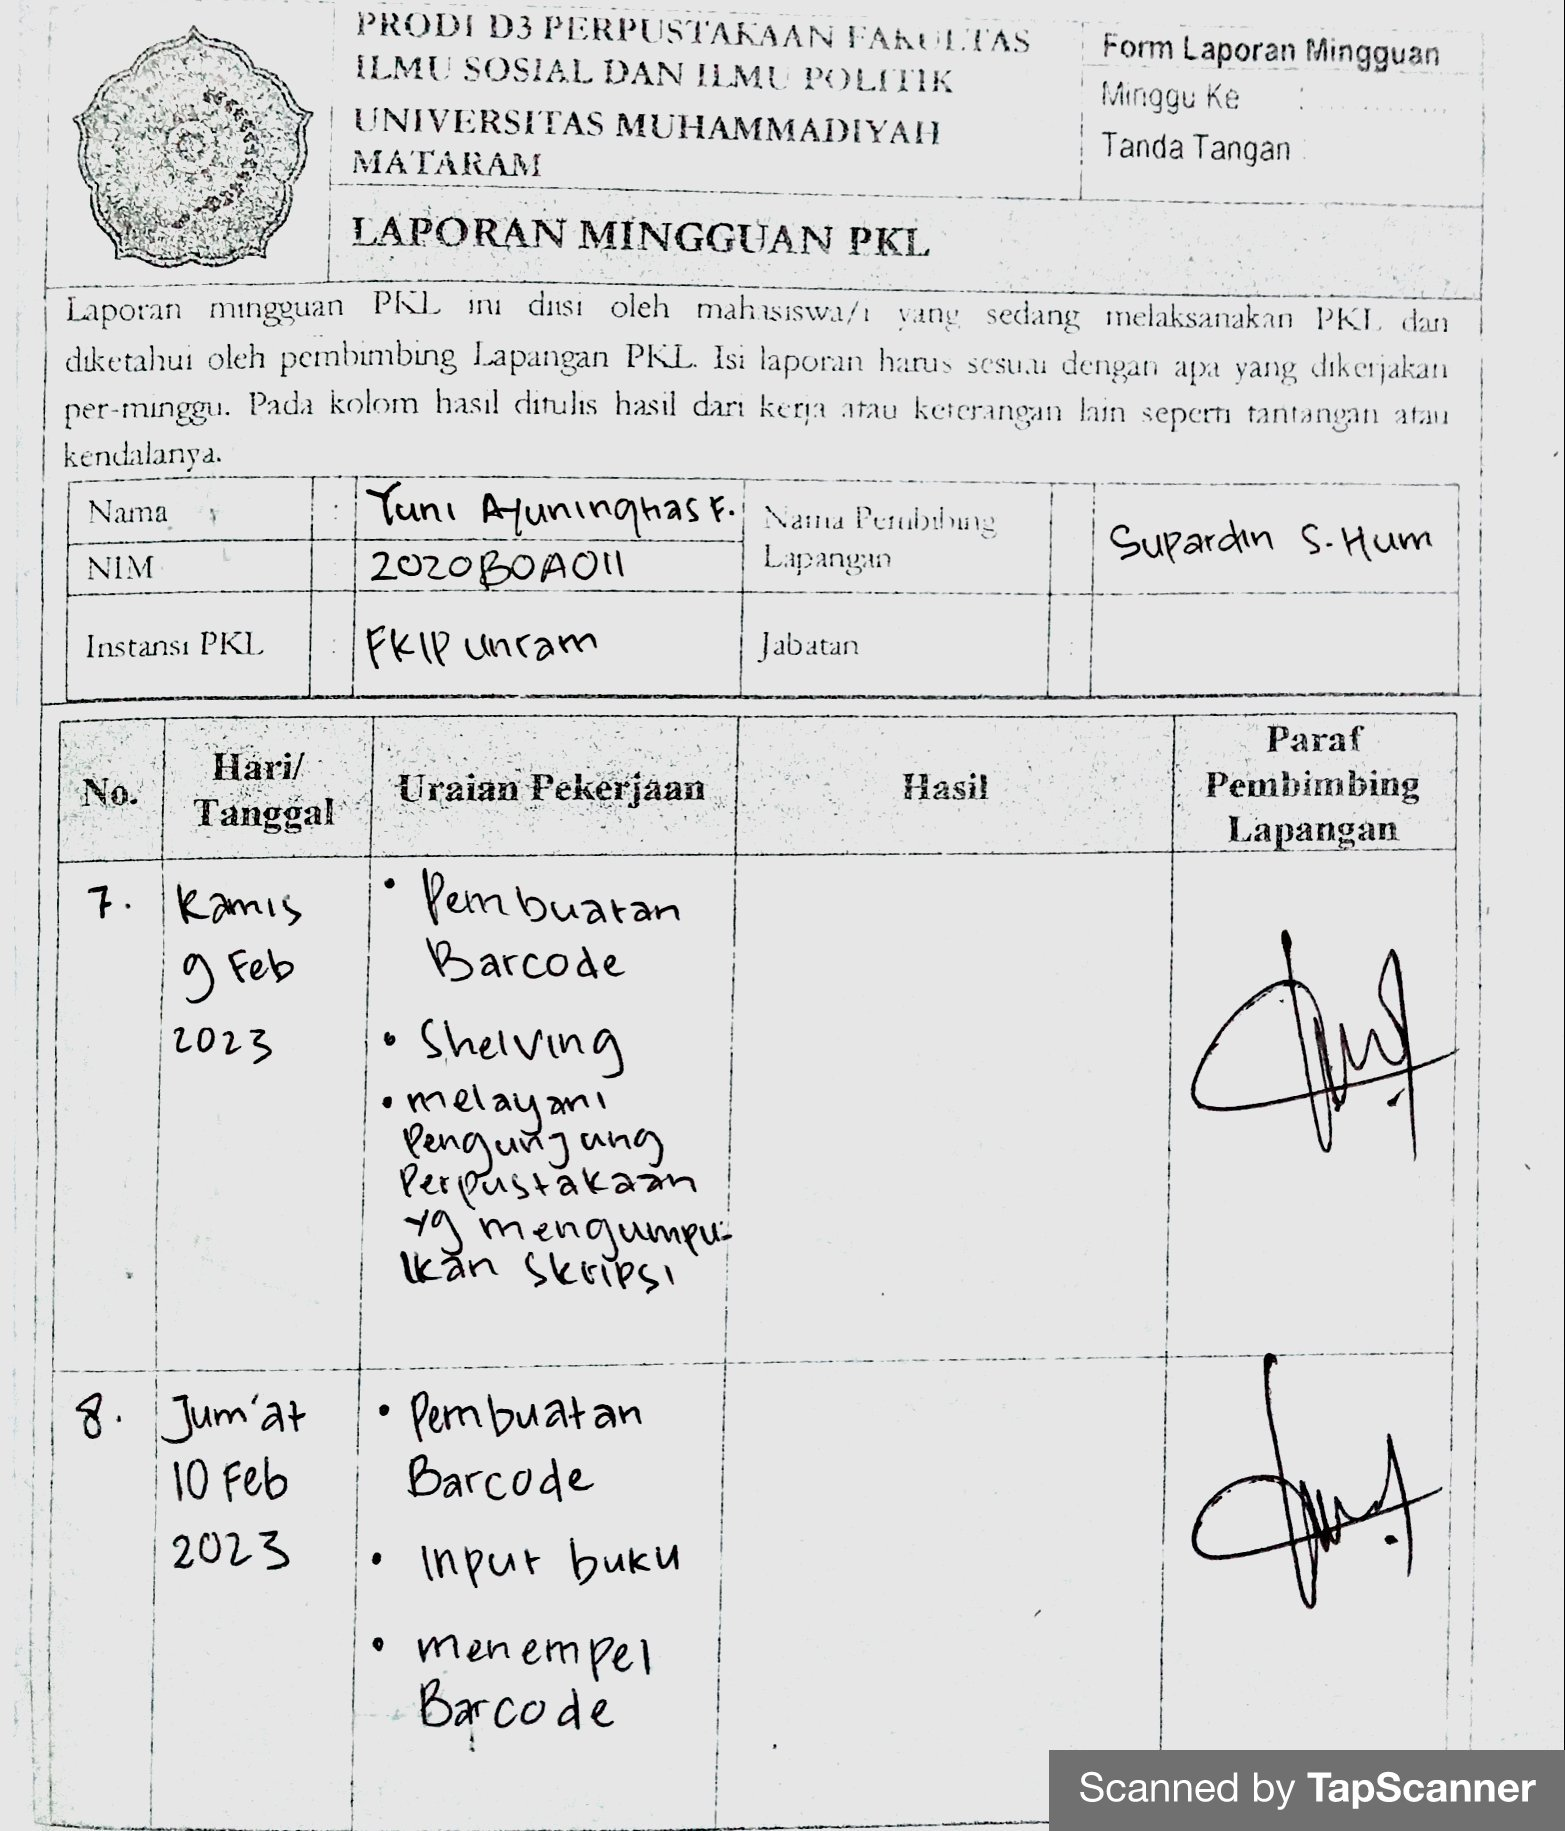 PRODI D3 PERPUSTAKAAN FAKULTAS
ILMU SOSIAL DAN ILMU POLITIK
UNIVERSITAS MUHAMMADIYAH
MATARAM
Form Laporan Mingguan
Minggu Ke : ............
Tanda Tangan :
LAPORAN MINGGUAN PKL
Laporan mingguan PKL ini diisi oleh mahasiswa/i yang sedang melaksanakan PKL dan
diketahui oleh pembimbing Lapangan PKL. Isi laporan harus sesuai dengan apa yang dikerjakan
per-minggu. Pada kolom hasil ditulis hasil dari kerja atau keterangan lain seperti tantangan atau
kendalanya.
Nama : Yuni Ayuningtias F.
NIM : 2020B0A011
Nama Pembibung
Lapangan
Supardin S.Hum
Instansi PKL : FKIP Unram
Jabatan :
No.
Hari/
Tanggal
Uraian Pekerjaan
Hasil
Paraf
Pembimbing
Lapangan
7.
Kamis
9 Feb
2023
• Pembuatan
Barcode
• Shelving
• melayani
Pengunjung
Perpustakaan
yg mengumpu-
lkan Skripsi
8.
Jum'at
10 Feb
2023
• Pembuatan
Barcode
• Input buku
• menempel
Barcode
Scanned by TapScanner